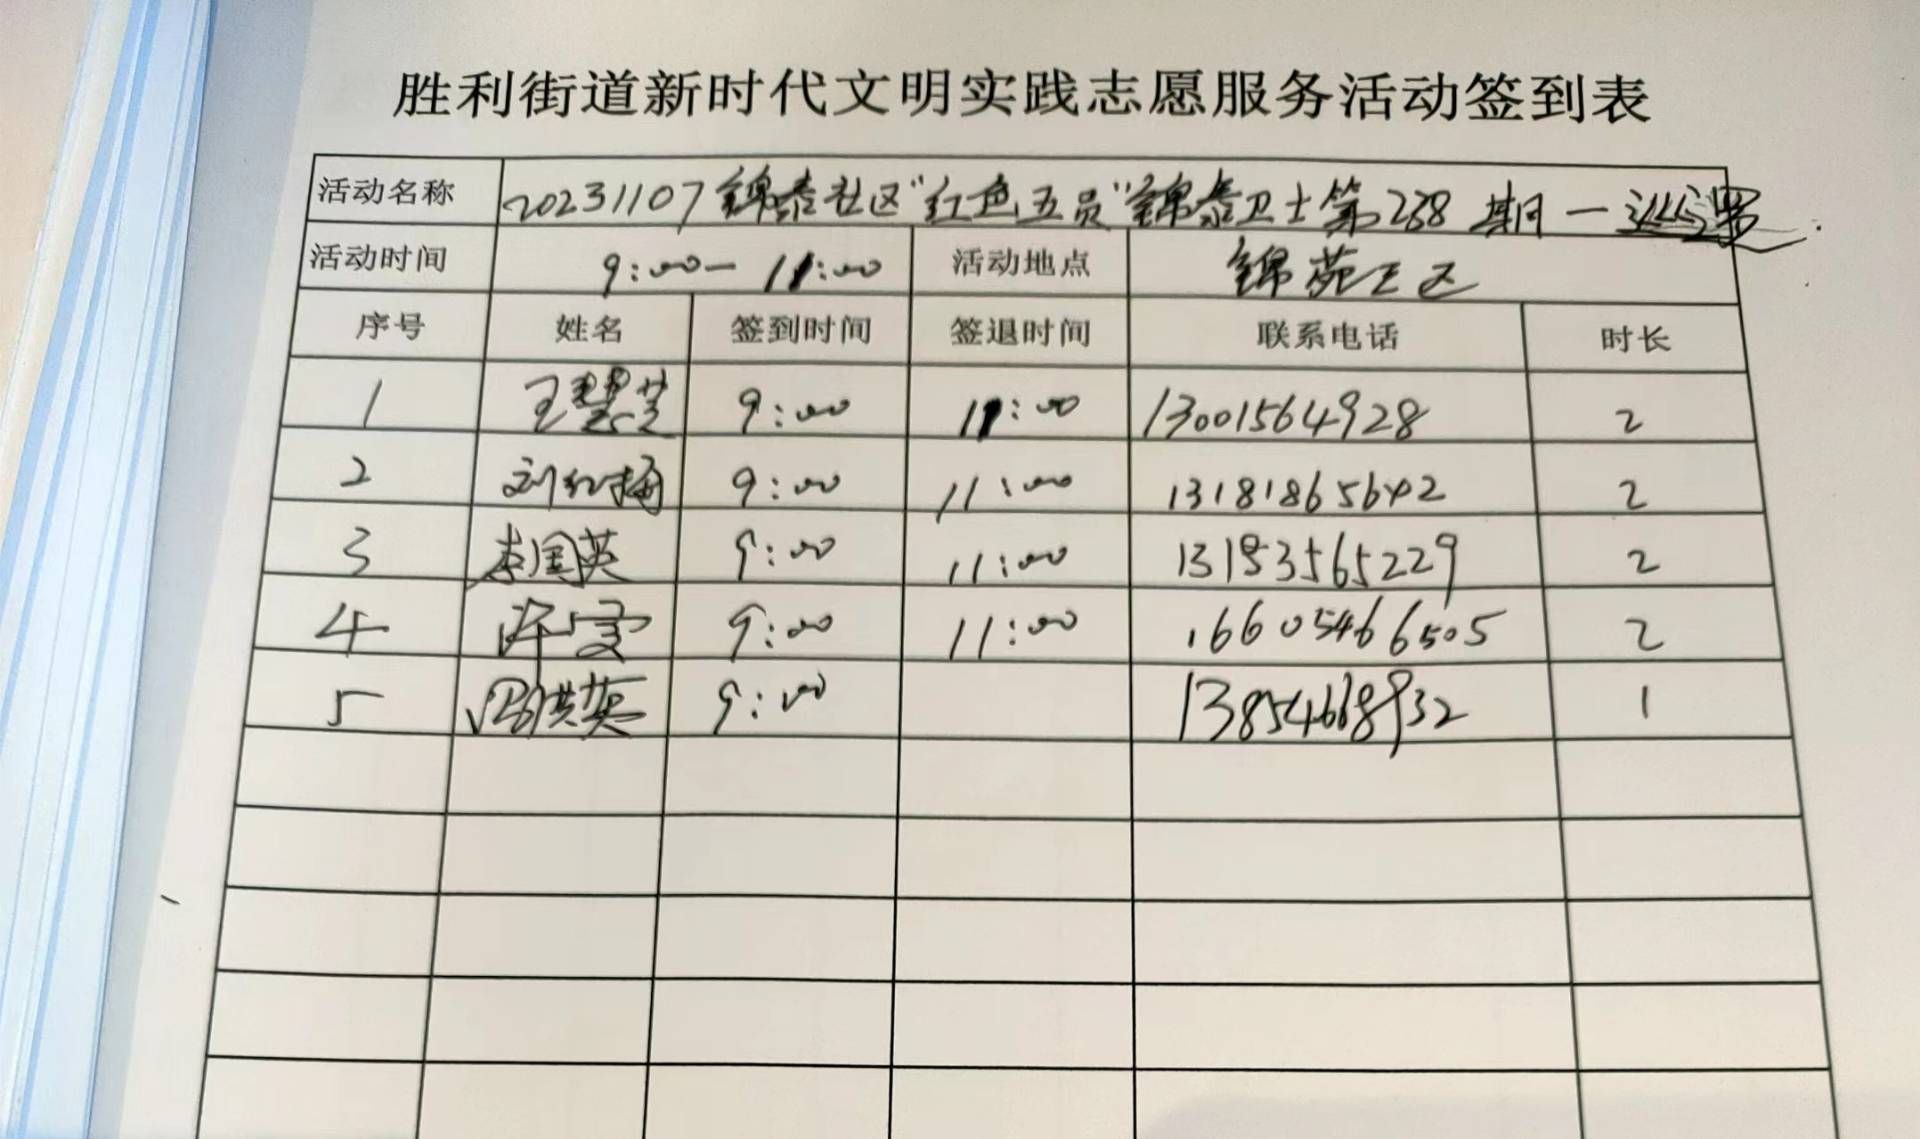 胜利街道新时代文明实践志愿服务活动签到表
活动名称 20231107锦泰社区“红色五员”锦泰卫士第238期一巡逻
活动时间 9:00-11:00 活动地点 锦苑三区
序号 姓名 签到时间 签退时间 联系电话 时长
1 王慧芝 9:00 11:00 13001564928 2
2 刘红梅 9:00 11:00 13181865642 2
3 李国英 9:00 11:00 13153565229 2
4 许雯 9:00 11:00 16605466505 2
5 洪英 9:00 13854668932 1